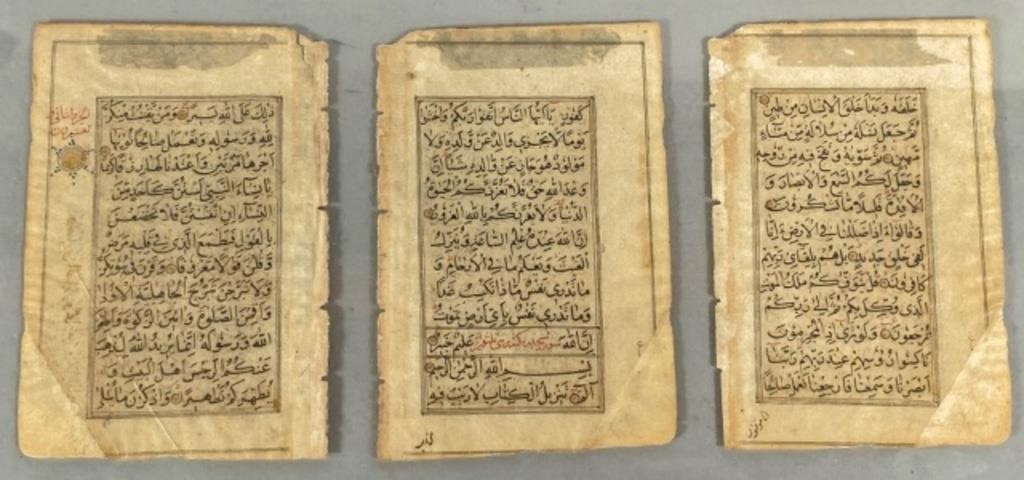 خلقه وبدأ خلق الانسان من طين
ثم جعل نسله من سلالة من ماء
مهين ثم سويه ونفخ فيه من روحه
وجعل لكم السمع والابصار و
الافئدة قليلا ما تشكرون
وقالوا ءاذا ضللنا في الارض ءانا
لفي خلق جديد بل هم بلقاي ربهم
كافرون قل يتوفيكم ملك الموت
الذي وكل بكم ثم الي ربكم
ترجعون ولو تري اذ المجرمون
ناكسوا رؤسهم عند ربهم ربنا
ابصرنا وسمعنا فارجعنا نعمل صالحا
انا موقنون
كفور يا ايها الناس اتقوا ربكم واخشوا
يوما لا يجزي والد عن ولده ولا
مولود هو جاز عن والده شيئا ان
وعد الله حق فلا تغرنكم الحيوة
الدنيا ولا يغرنكم بالله الغرور
ان الله عنده علم الساعة وينزل
الغيث ويعلم ما في الارحام و
ما تدري نفس ماذا تكسب غدا
وما تدري نفس باي ارض تموت
ان الله عليم خبير
بسم الله الرحمن الرحيم
الم تنزيل الكتاب لا ريب فيه
ذلك علي الله يسيرا ومن يقنت منكن
لله ورسوله وتعمل صالحا نؤتها
اجرها مرتين واعتدنا لها رزقا كريما
يا نساء النبي لستن كاحد من
النساء ان اتقيتن فلا تخضعن
بالقول فيطمع الذي في قلبه مرض
وقلن قولا معروفا وقرن في بيوتكن
ولا تبرجن تبرج الجاهلية الاولي
واقمن الصلوة واتين الزكوة واطعن
الله ورسوله انما يريد الله ليذهب
عنكم الرجس اهل البيت و
يطهركم تطهيرا واذكرن ما يتلي